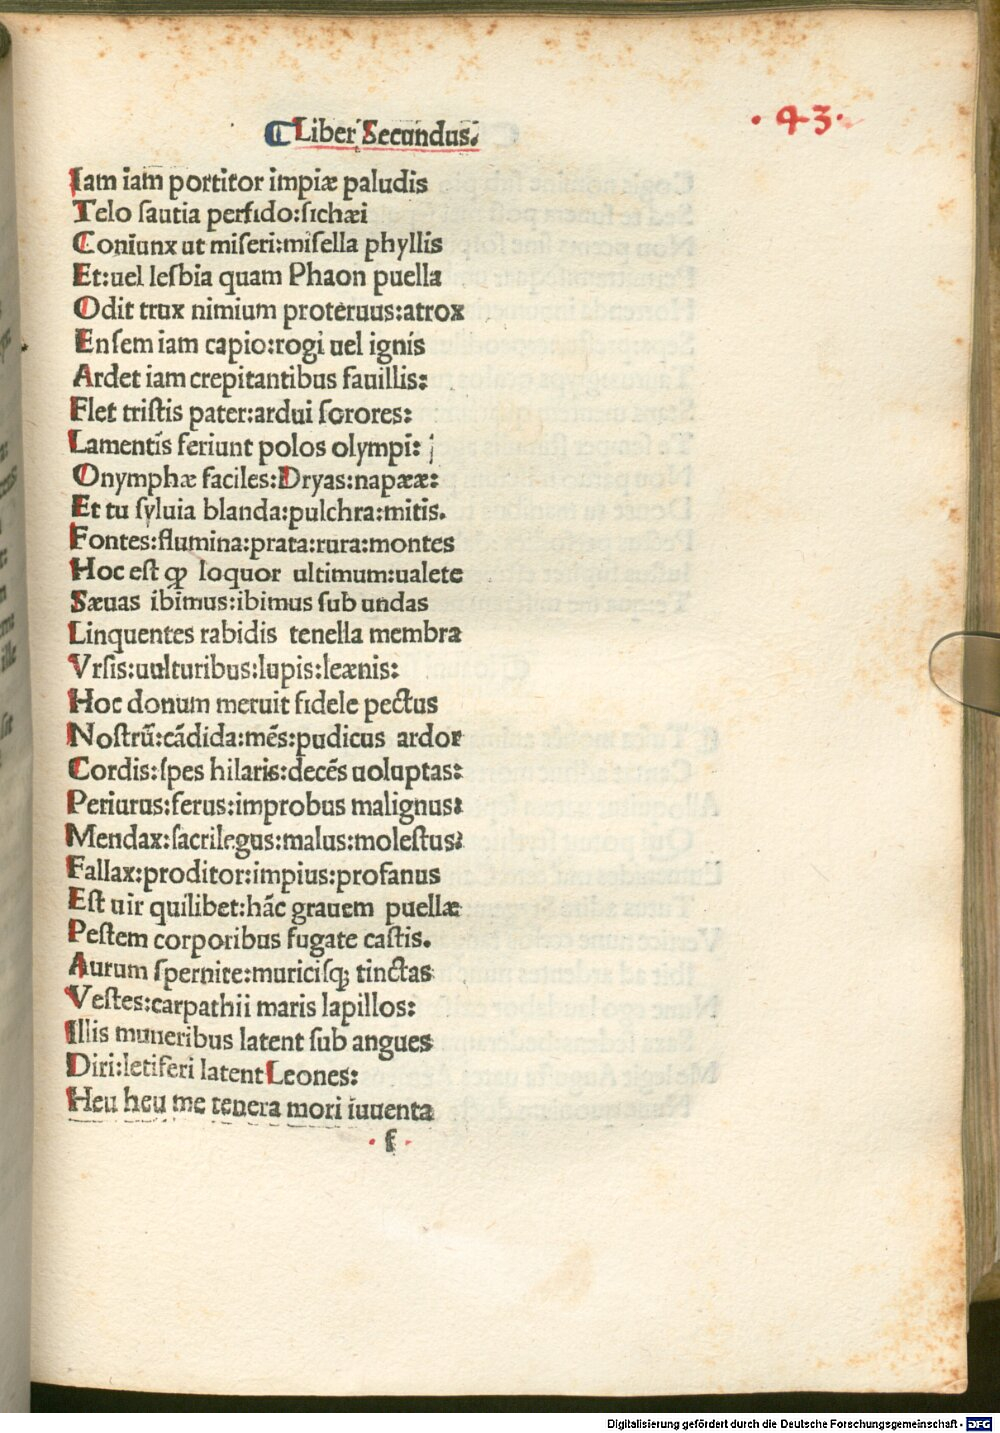 Liber Secundus.
· 43 ·
Iam iam portitor impiæ paludis
Telo sautia perfido:sichæi
Coniunx ut miseri:misella phyllis
Et:uel lesbia quam Phaon puella
Odit trux nimium proteruus:atrox
Ensem iam capio:rogi uel ignis
Ardet iam crepitantibus fauillis:
Flet tristis pater:ardui sorores:
Lamentis feriunt polos olympi:
Onymphæ faciles:Dryas:napææ:
Et tu syluia blanda:pulchra:mitis.
Fontes:flumina:prata:rura:montes
Hoc est ꝙ loquor ultimum:ualete
Sæuas ibimus:ibimus sub undas
Linquentes rabidis tenella membra
Vrsis:uulturibus:lupis:leænis:
Hoc donum meruit fidele pectus
Nostrũ:cãdida:mẽs:pudicus ardor
Cordis:spes hilaris:decẽs uoluptas:
Periurus:ferus:improbus malignus:
Mendax:sacrilegus:malus:molestus:
Fallax:proditor:impius:profanus
Est uir quilibet:hãc grauem puellæ
Pestem corporibus fugate castis.
Aurum spernite:muricisq; tinctas
Vestes:carpathii maris lapillos:
Illis muneribus latent sub angues
Diri:letiferi latent Leones:
Heu heu me tenera mori iuuenta
· f ·
Digitalisierung gefördert durch die Deutsche Forschungsgemeinschaft - DFG